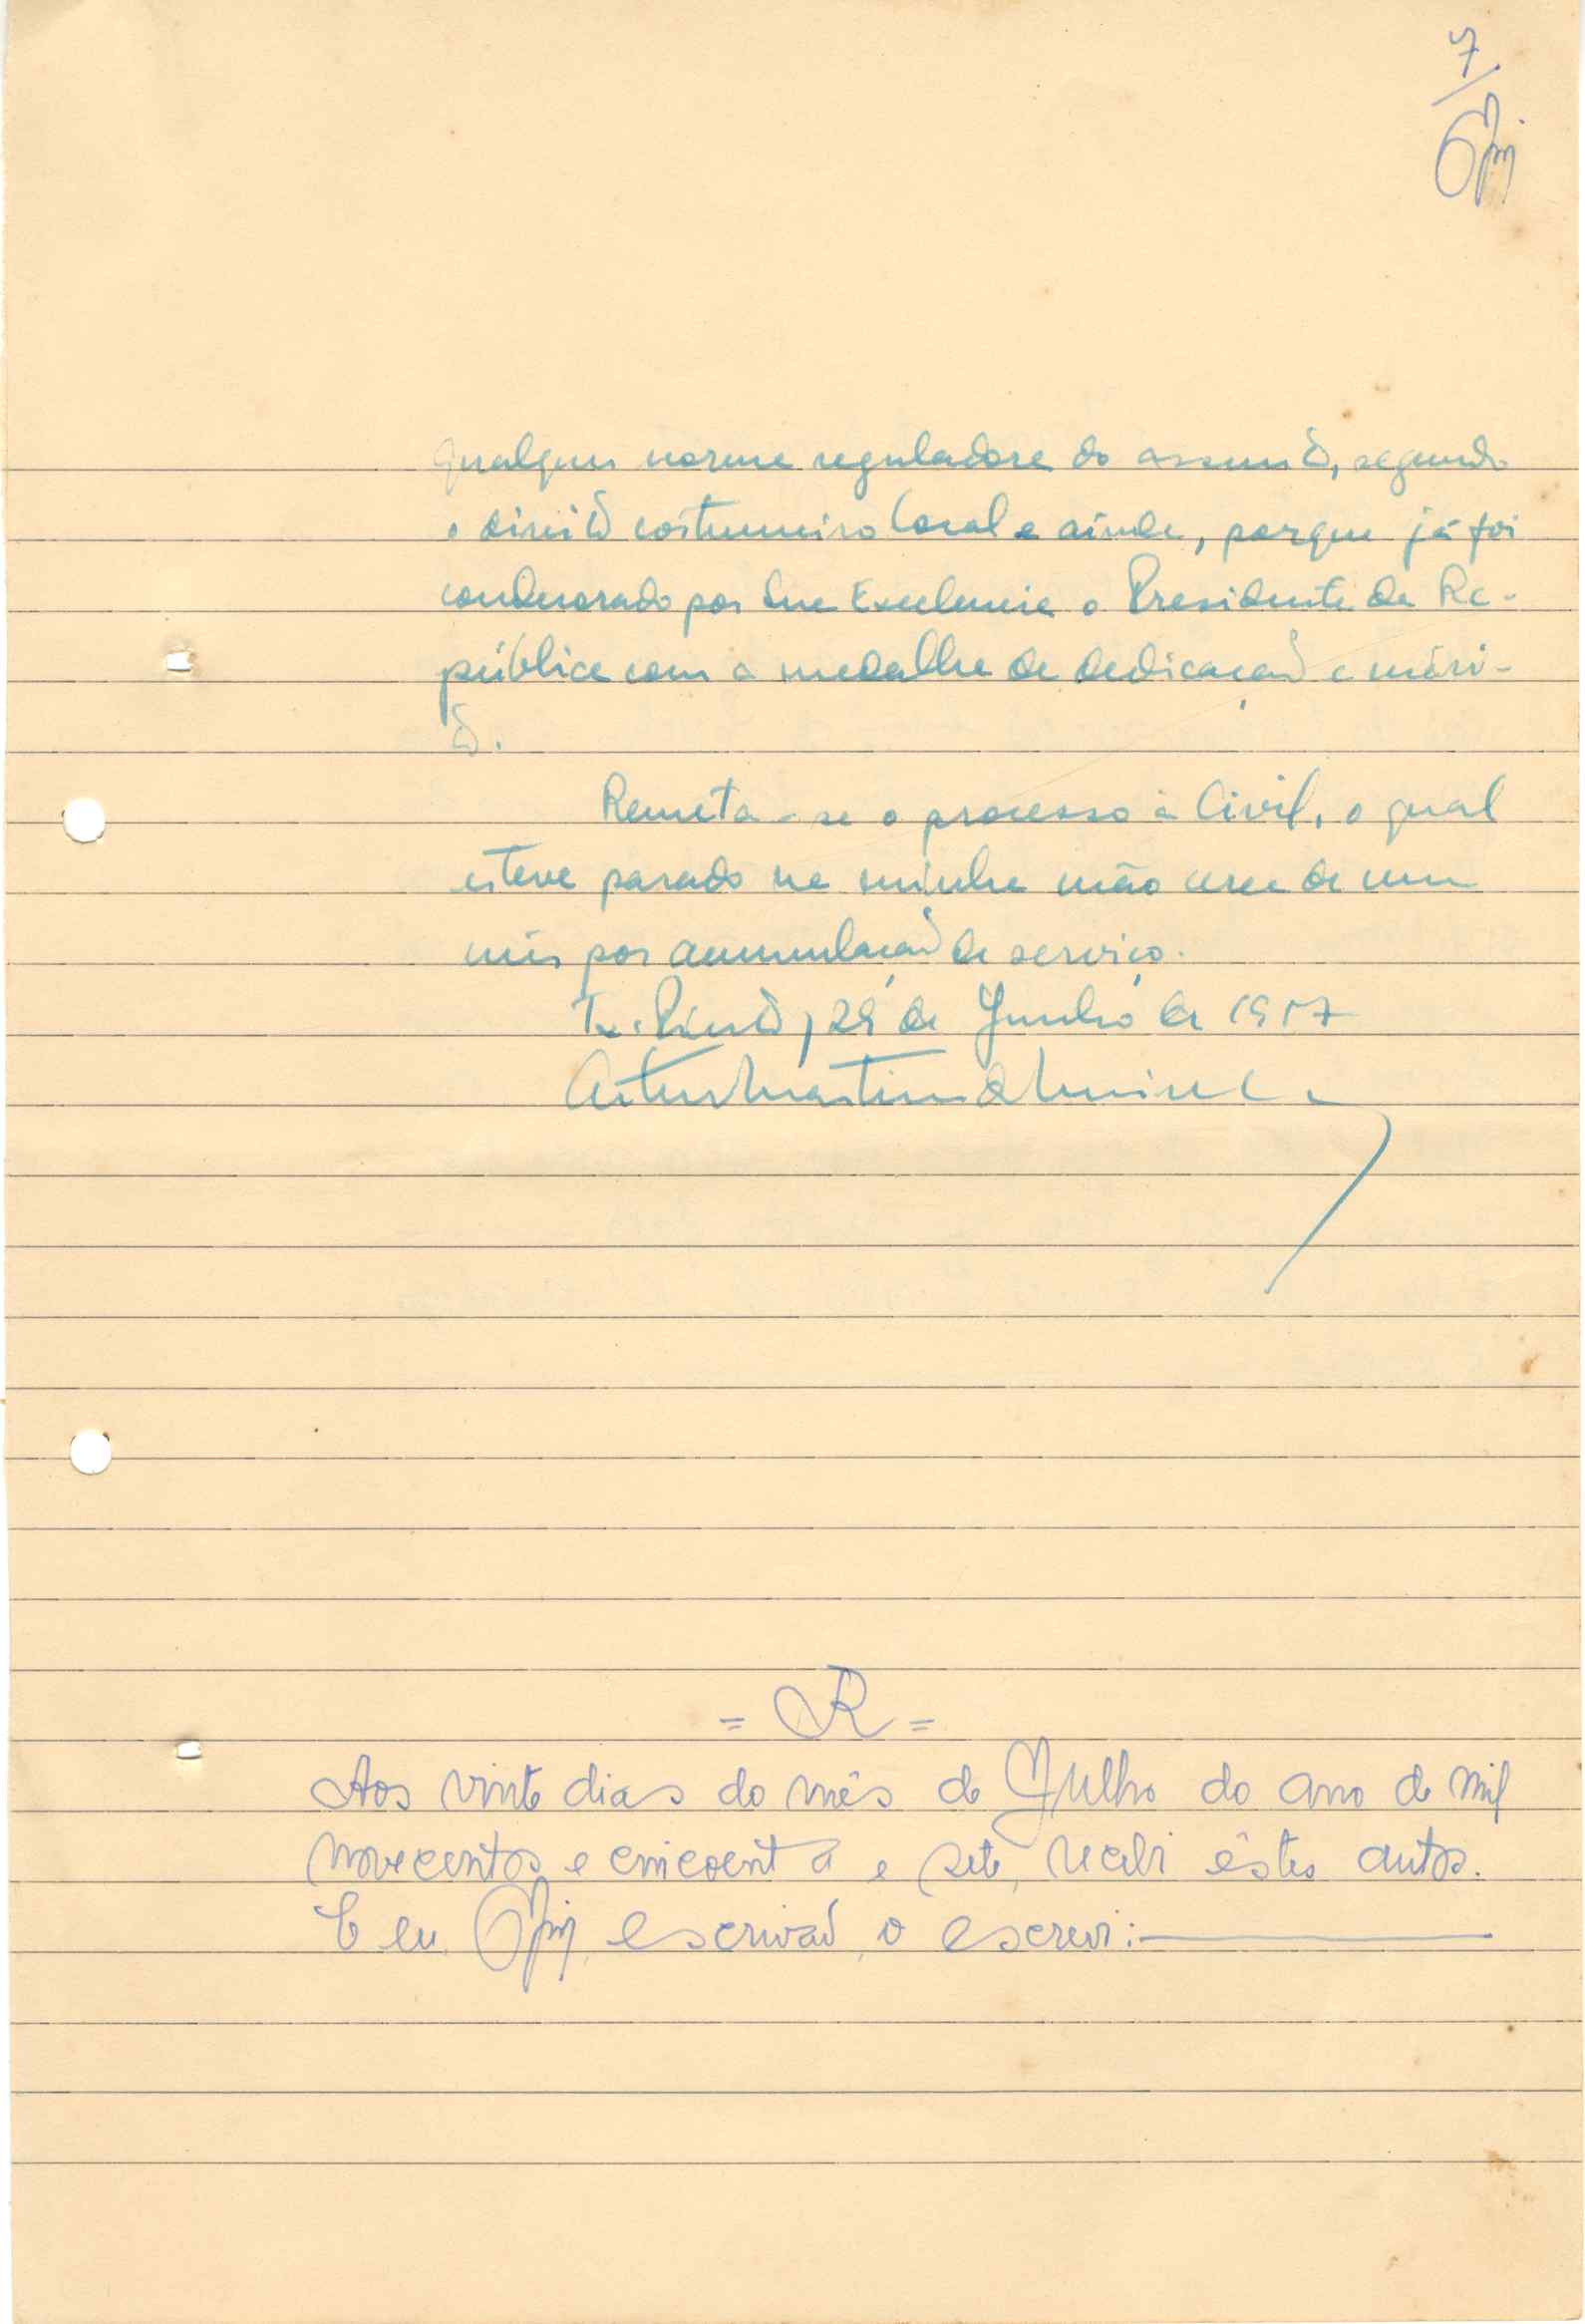 7
qualquer norma reguladora do assunto, segundo
o direito costumeiro local e ainda, porque já foi
condecorado por Sua Excelencia o Presidente da Re-
pública com a medalha de dedicação e méri-
to.
Remeta-se o processo à Civil, o qual
esteve parado na minha mão cerca de um
mês por acumulação de serviço.
T. Pinto, 29 de Junho de 1957
Artur Martins de
= R =
Aos vinte dias do mês de Julho do ano de mil
novecentos e cincoenta e sete, recebi êstes autos.
E eu, escrivão, o escrevi: